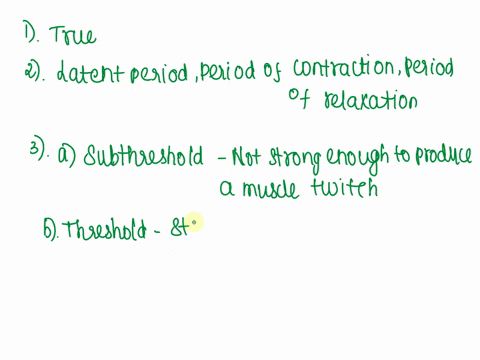 1). True
2). Latent period, period of contraction, period
of relaxation
3). a) Subthreshold - Not strong enough to produce
a muscle twitch
b). Threshold - St